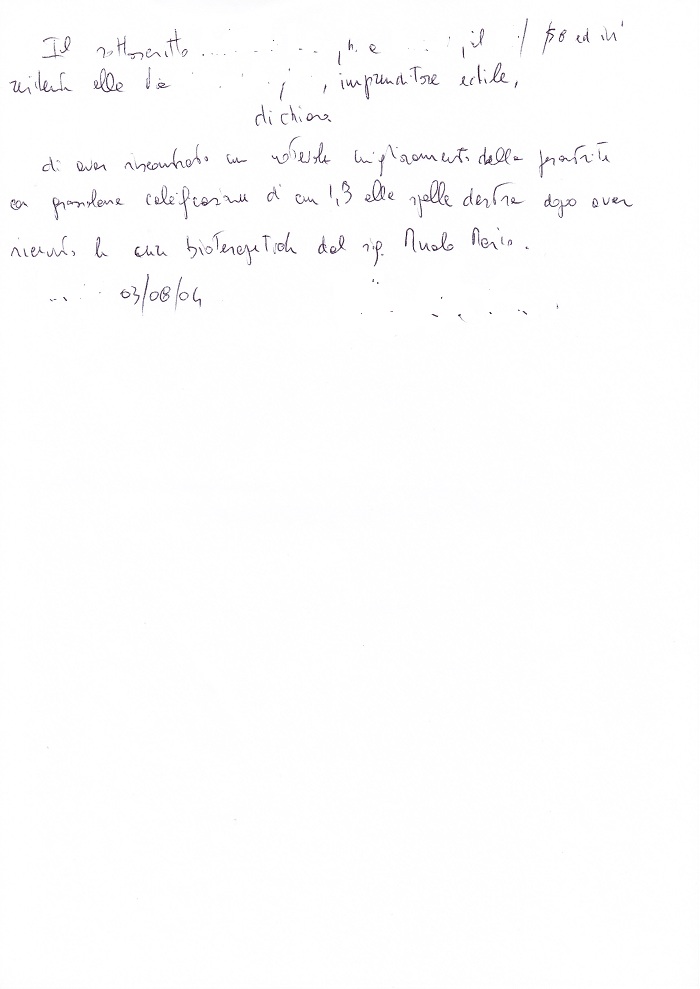 Il sottoscritto , n. a , il / 58 ed ivi
residente alla Via , , imprenditore edile,
dichiara
di aver riscontrato un notevole miglioramento della prostatite
con grossolana calcificazione di cm 1,3 e alla spalla destra dopo aver
ricevuto le cure bioterapeutiche dal sig. Mario.
03/08/04